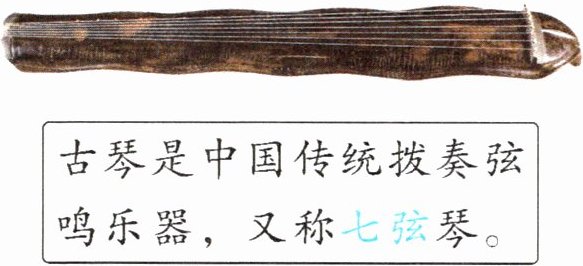 古琴是中国传统拨奏弦
鸣乐器，又称七弦琴。